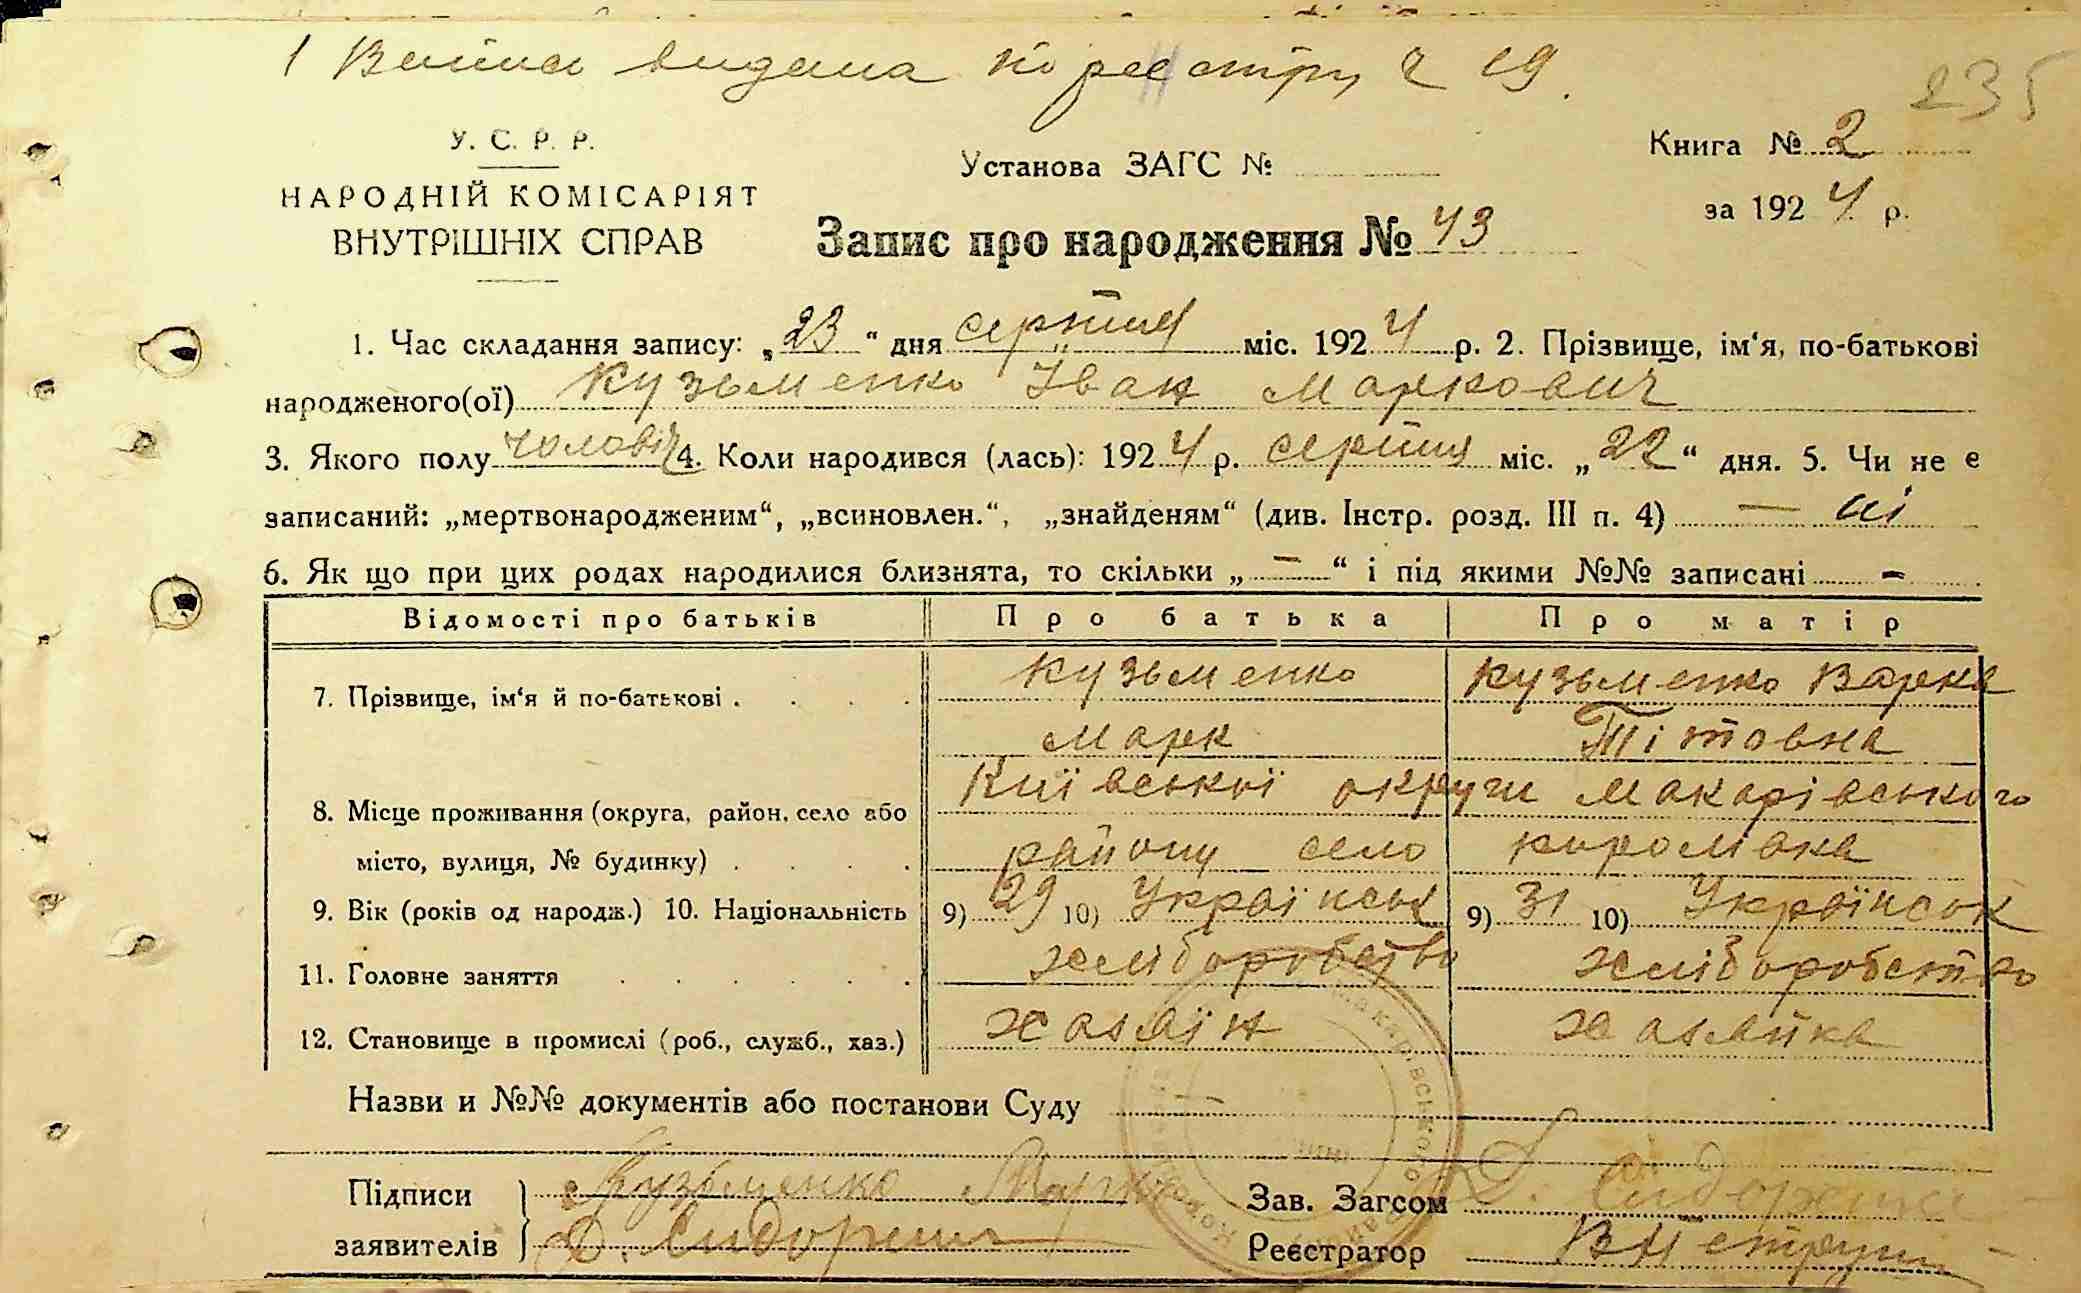 1 Випись видана по реєстру ч 19.
235
У. С. Р. Р.
НАРОДНІЙ КОМІСАРІЯТ
ВНУТРІШНІХ СПРАВ
Установа ЗАГС №
Книга № 2
за 1924 р.
Запис про народження № 43
1. Час складання запису: „23“ дня серпня міс. 1924 р. 2. Прізвище, ім‘я, по-батькові
народженого(ої) Кузьменко Іван Маркович
3. Якого полу чоловіч 4. Коли народився (лась): 1924 р. серпня міс. „22“ дня. 5. Чи не є
записаний: „мертвонародженим“, „всиновлен.“, „знайденям“ (див. Інстр. розд. III п. 4) — ні
6. Як що при цих родах народилися близнята, то скільки „—“ і під якими №№ записані -
Відомості про батьків Про батька Про матір
7. Прізвище, ім‘я й по-батькові . . . . Кузьменко Кузьменко Варка
Марк Тітовна
8. Місце проживання (округа, район, село або Київської округи Макарівського
місто, вулиця, № будинку) . . . . району село Королівка
9. Вік (років од народж.) 10. Національність 9) 29 10) Українськ 9) 31 10) Українськ
11. Головне заняття . . . . . . хліборобство хліборобство
12. Становище в промислі (роб., служб., хаз.) хазяїн хазяйка
Назви и №№ документів або постанови Суду —
Підписи Кузьменко Марко Зав. Загсом
заявителів Реєстратор